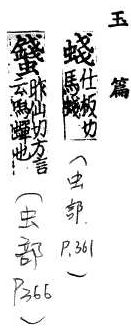 玉篇
䗃 仕板切
馬䗃
(虫部 P.361)
昨仙切方言
云馬蟬也
(虫部 P.366)